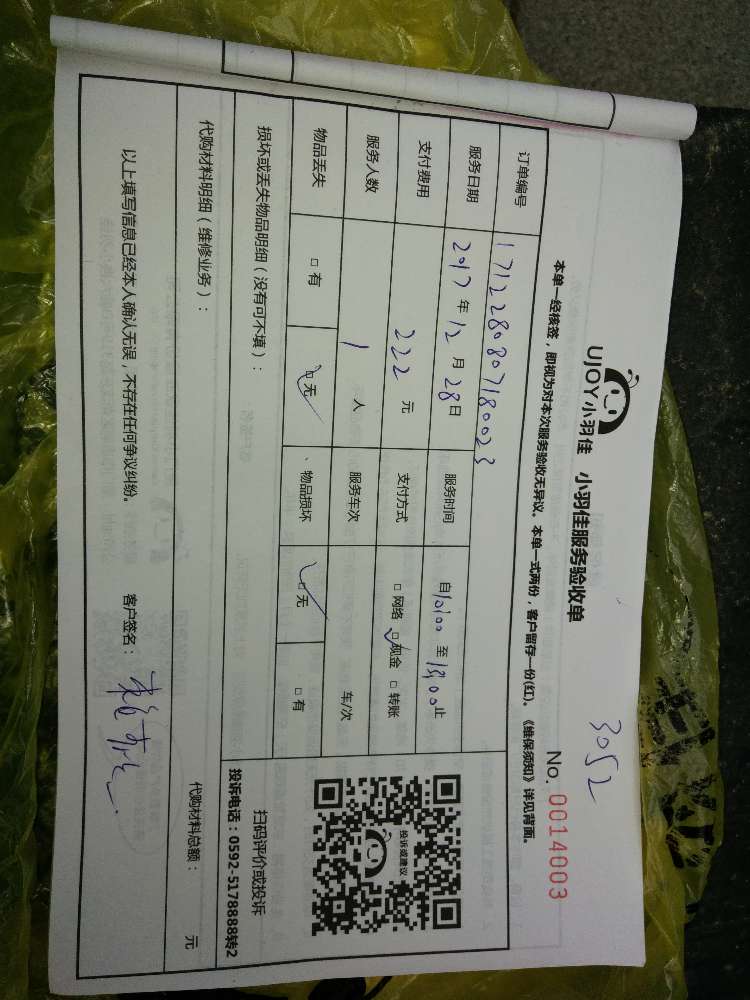 3052
UJOY小羽佳 小羽佳服务验收单
No. 0014003
本单一经核签，即视为对本次服务验收无异议。本单一式两份，客户留存一份(红)。《维保须知》详见背面。
订单编号 1712280807180023
服务日期 2017年12月28日 服务时间 自10:00至18:00止
支付费用 222元 支付方式 □网络 □现金 □转账
服务人数 1人 服务车次 车/次
物品丢失 □有 □无 物品损坏 □无 □有
损坏或丢失物品明细（没有可不填）：
投诉或建议
扫码评价或投诉
投诉电话：0592-5178888转2
代购材料明细（维修业务）：
代购材料总额： 元
以上填写信息已经本人确认无误，不存在任何争议纠纷。 客户签名：